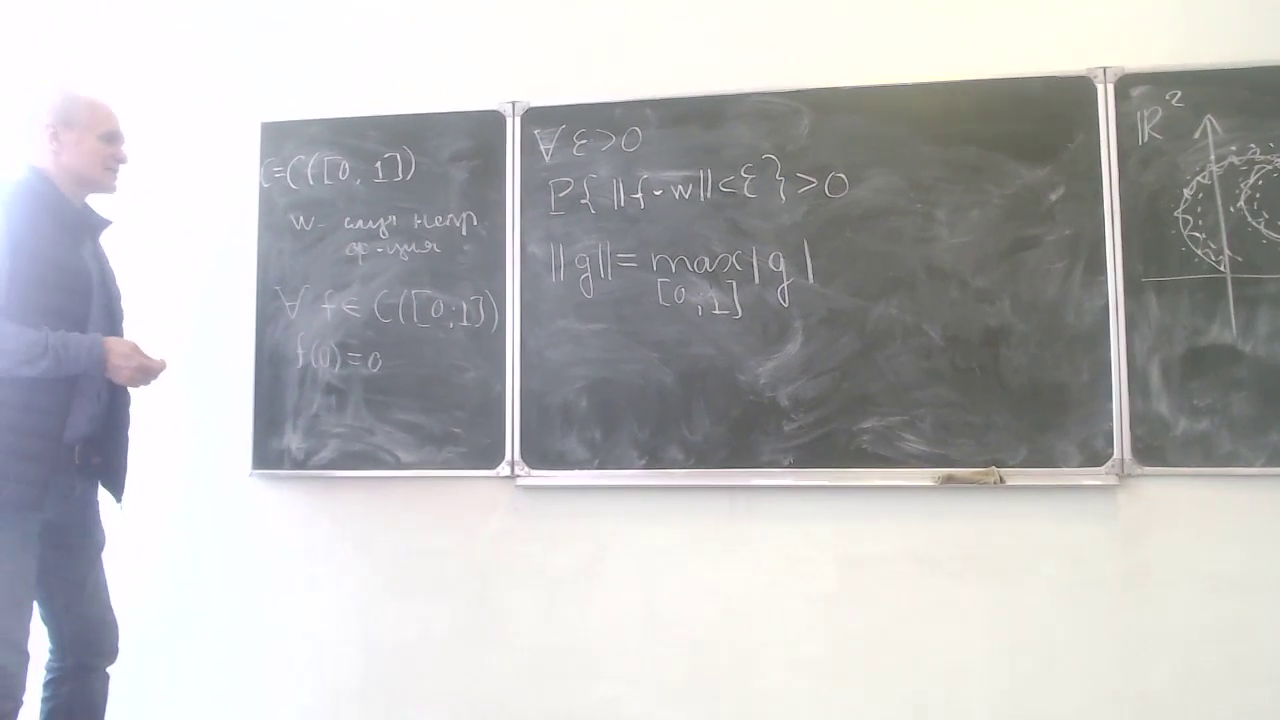 E=C([0,1])
w- случ непр
ф-ция
∀ f∈ C([0;1])
f(0)=0
∀ ε>0
P{ ||f-w||<ε}>0
||g||= max|g|
[0;1]
ℝ²